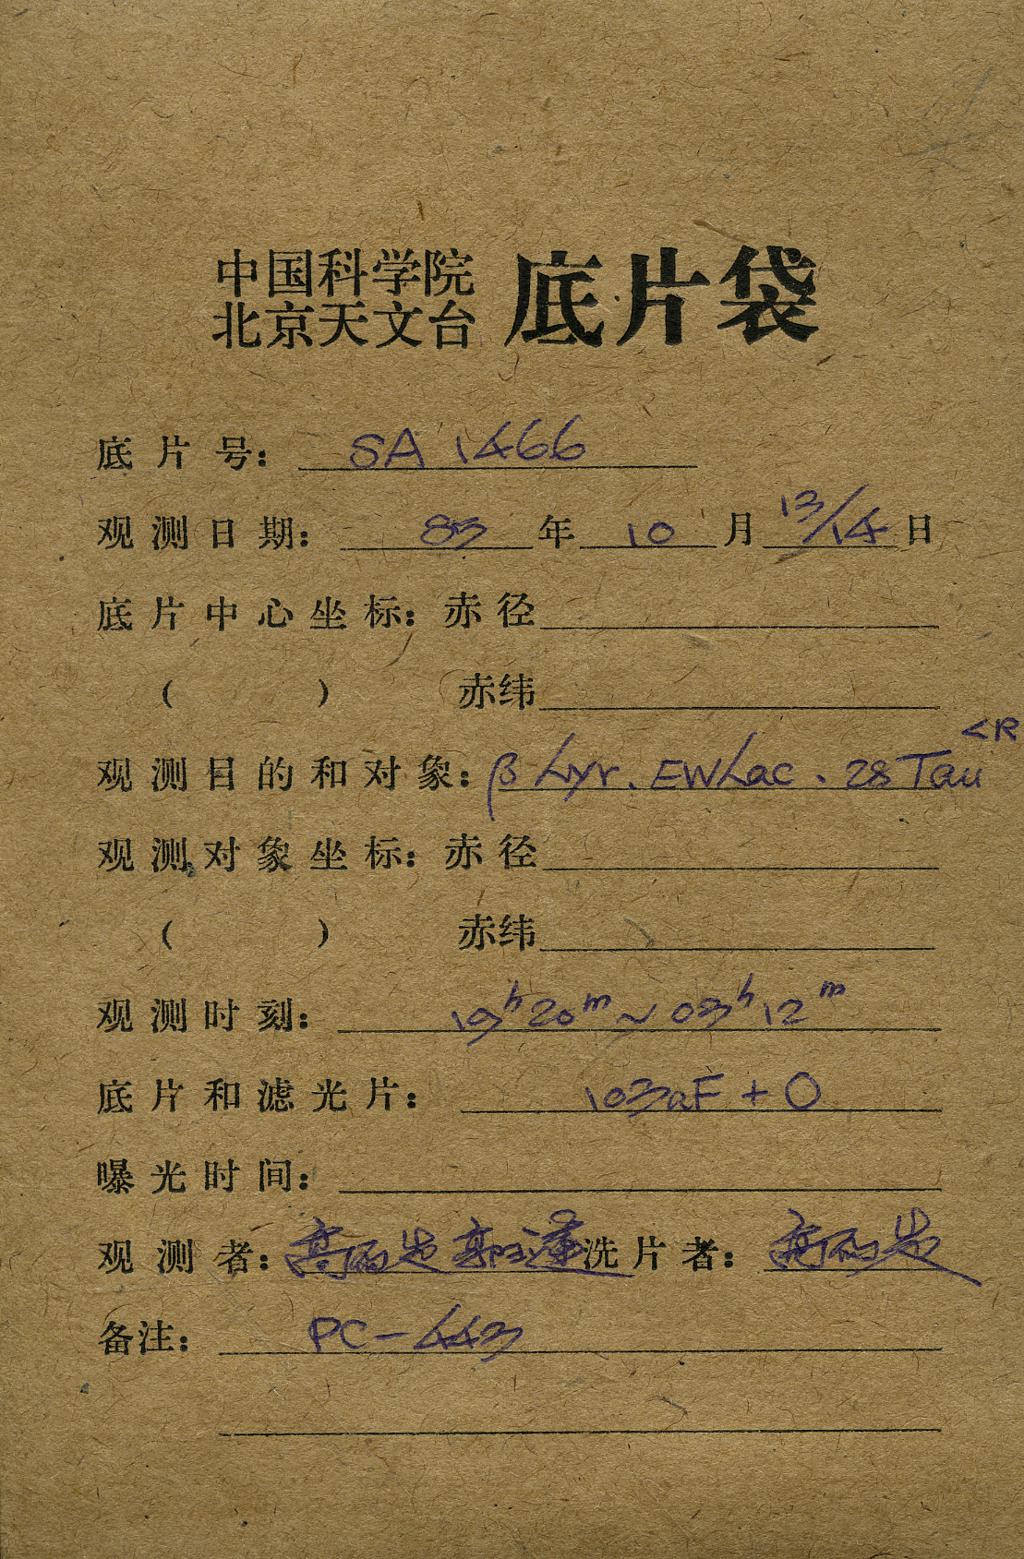 中国科学院
北京天文台 底片袋
底片号: SA 1466
观测日期: 83 年 10 月 13/14 日
底片中心坐标: 赤径
( ) 赤纬
<R
观测目的和对象: β Lyr. EWLac. 28 Tau
观测对象坐标: 赤径
( ) 赤纬
观测时刻: 19h20m~03h12m
底片和滤光片: 103aF + O
曝光时间:
观测者: 高 郭 洗片者: 高
备注: PC-443